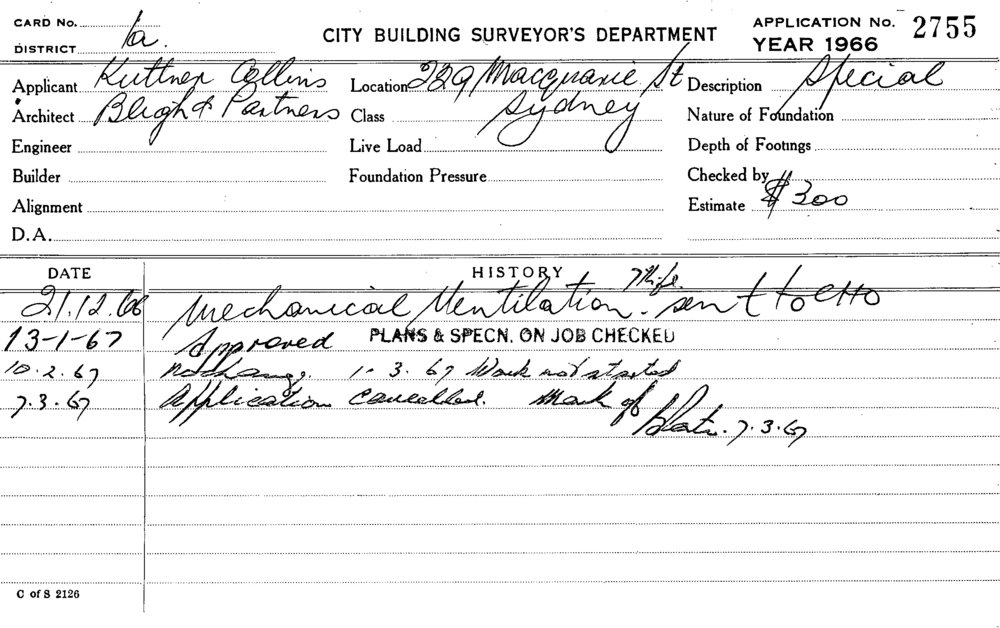 CARD NO. 1a. CITY BUILDING SURVEYOR'S DEPARTMENT APPLICATION NO. 2755
DISTRICT YEAR 1966
Applicant Kuttner Collins Location 229 Macquarie St Description Special
Architect Bligh & Partners Class Sydney Nature of Foundation
Engineer Live Load Depth of Footings
Builder Foundation Pressure Checked by
Alignment Estimate $300
D.A.
DATE HISTORY
21.12.66 Mechanical Ventilation. sent to
13-1-67 Approved PLANS & SPECN. ON JOB CHECKED
10.2.67 No change. 1.3.67 Work not started
7.3.67 Application Cancelled. Mark of
7.3.67
C of S 2126